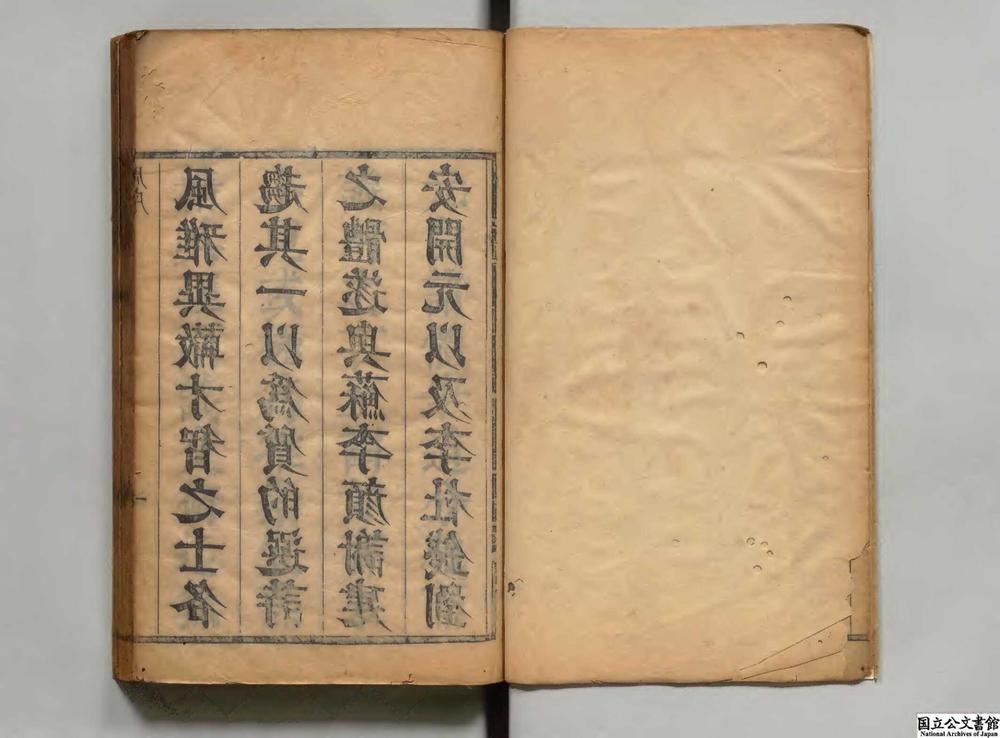 風雅異轍才智之士各
趨其一以爲質的選詩
之體遂與蘇李顔謝建
安開元以及李杜錢劉
国立公文書館
National Archives of Japan